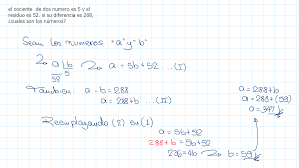 el cociente de dos numero es 5 y el
residuo es 52, si su diferencia es 288,
¿cuáles son los números?
Sean los numeros "a" y "b"
a | b
52 5
a = 5b + 52 ... (I)
Tambien: a - b = 288
a = 288 + b ... (II)
Reemplazando (2) en (1)
a = 5b + 52
288 + b = 5b + 52
236 = 4b
b = 59
a = 288 + b
a = 288 + (59)
a = 347